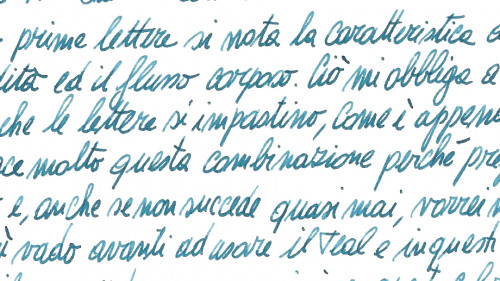 prime lettere si nota la caratteristica
ed il flusso corposo. Ciò mi obbliga a
che le lettere si impastino, come è appena
molto questa combinazione perché
e, anche se non succede quasi mai, vorrei
vado avanti ad usare il Teal e in questi